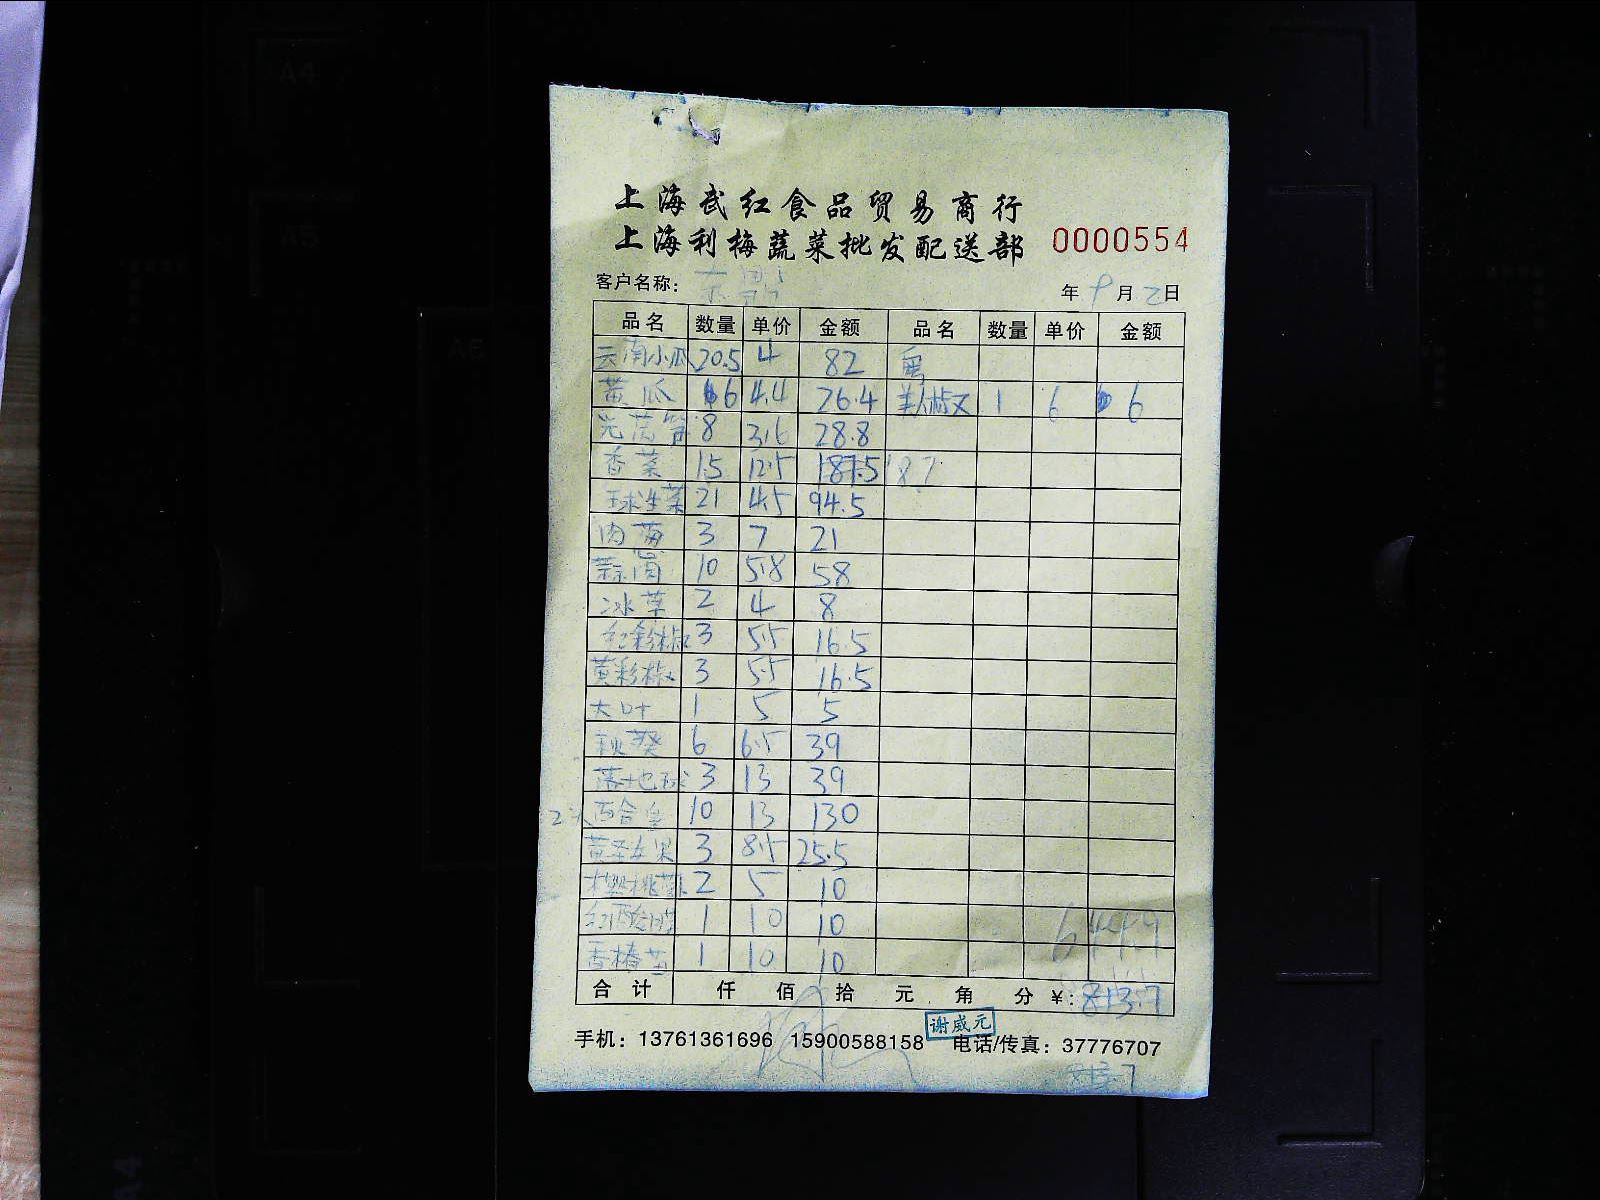 上海武红食品贸易商行
上海利梅蔬菜批发配送部 0000554
客户名称:
年 9 月 2 日
品名 数量 单价 金额 品名 数量 单价 金额
云南小瓜 20.5 4 82
黄瓜 6 4.4 26.4 羊角椒 1 6 6
光莴笋 8 3.6 28.8
香菜 1.5 12.5 187.5 187
球生菜 21 4.5 94.5
内葡 3 7 21
10 5.8 58
冰草 2 4 8
红彩椒 3 5.5 16.5
黄彩椒 3 5.5 16.5
大叶 1 5 5
秋葵 6 6.5 39
落地球 3 13 39
百合 10 13 130
黄圣女果 3 8.5 25.5
樱桃萝 2 5 10
1 10 10 644.9
香椿苗 1 10 10
合计 仟 佰 拾 元 角 分 ¥: 813.7
谢威元
手机: 13761361696 15900588158 电话/传真: 37776707
813.7